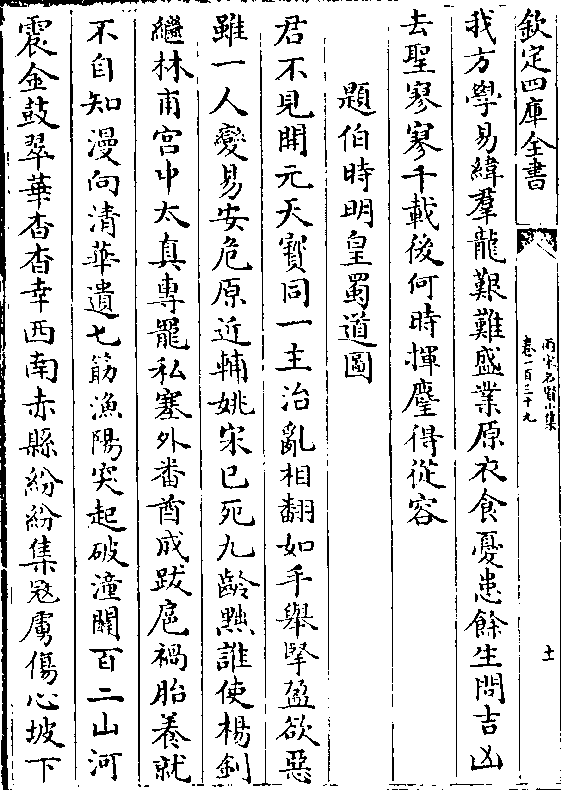 欽定四庫全書
兩宋名賢小集
卷一百三十九
十
我方學易緯羣龍艱難盛業原衣食憂患餘生問吉凶
去聖寥寥千載後何時揮麈得從容
題伯時明皇蜀道圖
君不見開元天寶同一主治亂相翻如手舉擎盈欲惡
雖一人變易安危原近輔姚宋已死九齡黜誰使楊釗
繼林甫宫中太真專罷私塞外畨酋成跋扈禍胎養就
不自知漫向清華遺匕筯漁陽突起破潼闗百二山河
震金鼓翠華杳杳幸西南赤縣紛紛集冦虜傷心坡下